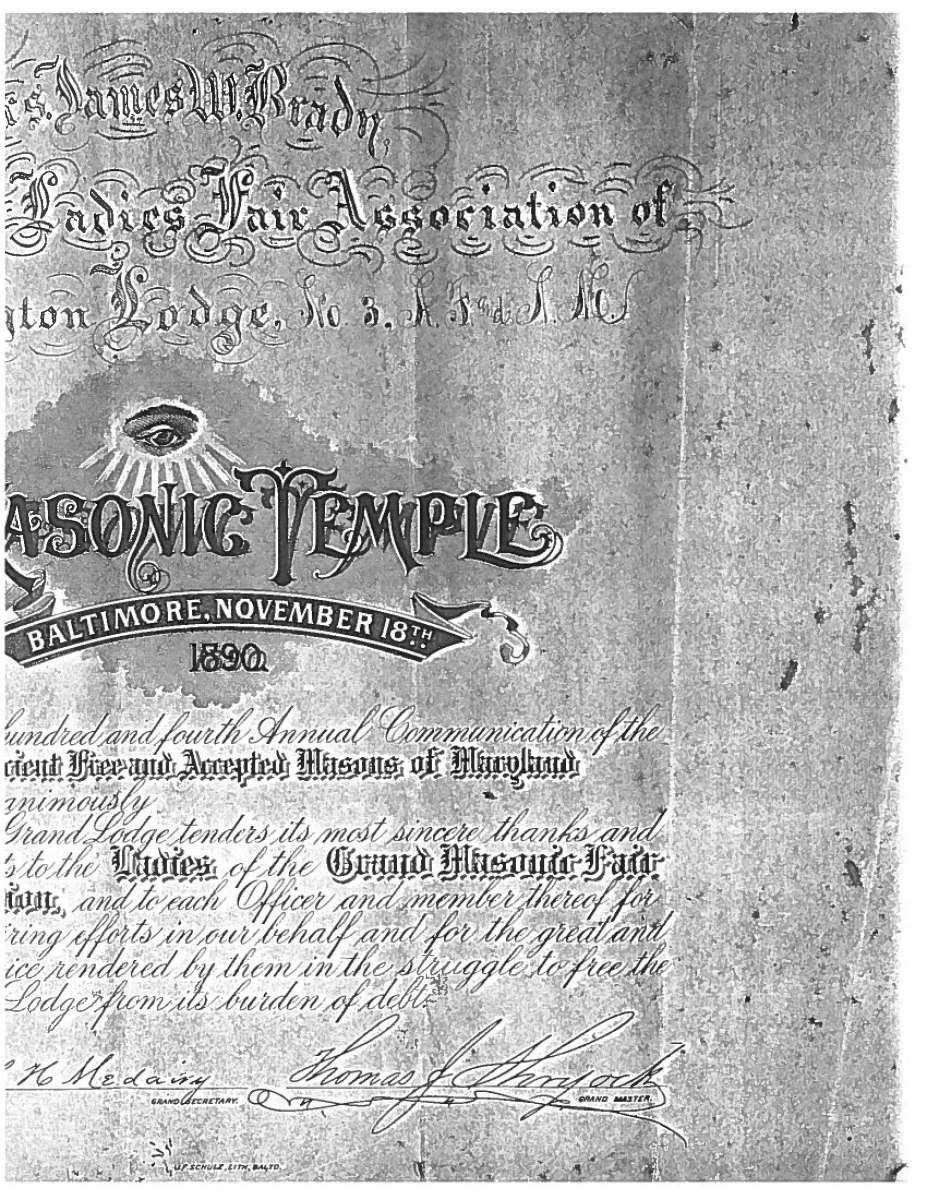 rs. James W. Brady,
Ladies Fair Association of
gton Lodge, No 3. A. F. and A. M.
ASONIC TEMPLE
BALTIMORE, NOVEMBER 18TH
1890.
hundred and fourth Annual Communication of the
cient Free and Accepted Masons of Maryland
animously
Grand Lodge tenders its most sincere thanks and
s to the Ladies of the Grand Masonic Fair
tion, and to each Officer and member thereof for
iring efforts in our behalf and for the great and
ice rendered by them in the struggle to free the
Lodge from its burden of debt.
H Medairy Thomas J Shryock
GRAND SECRETARY. GRAND MASTER.
SCHULZ, LITH, BALTO.